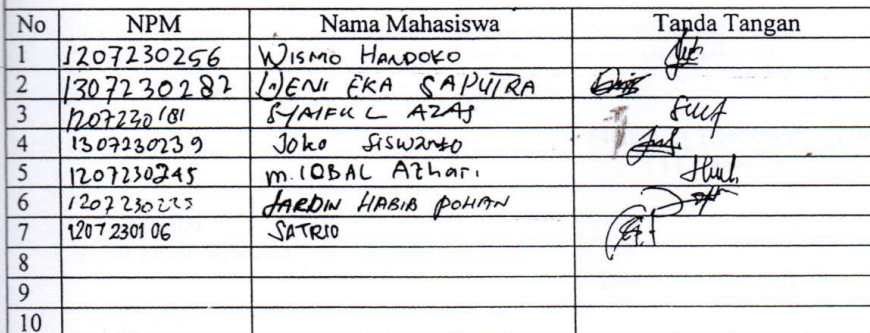 No NPM Nama Mahasiswa Tanda Tangan
1 1207230256 WISMO HANDOKO
2 1307230282 DENI EKA SAPUTRA
3 1207230181 SYAIFUL AZAS
4 1307230239 Joko SISWANtO
5 1207230245 M. IQBAL AZhari
6 1207230225 JARDIN HABIB POHAN
7 1207230106 SATRIO
8
9
10